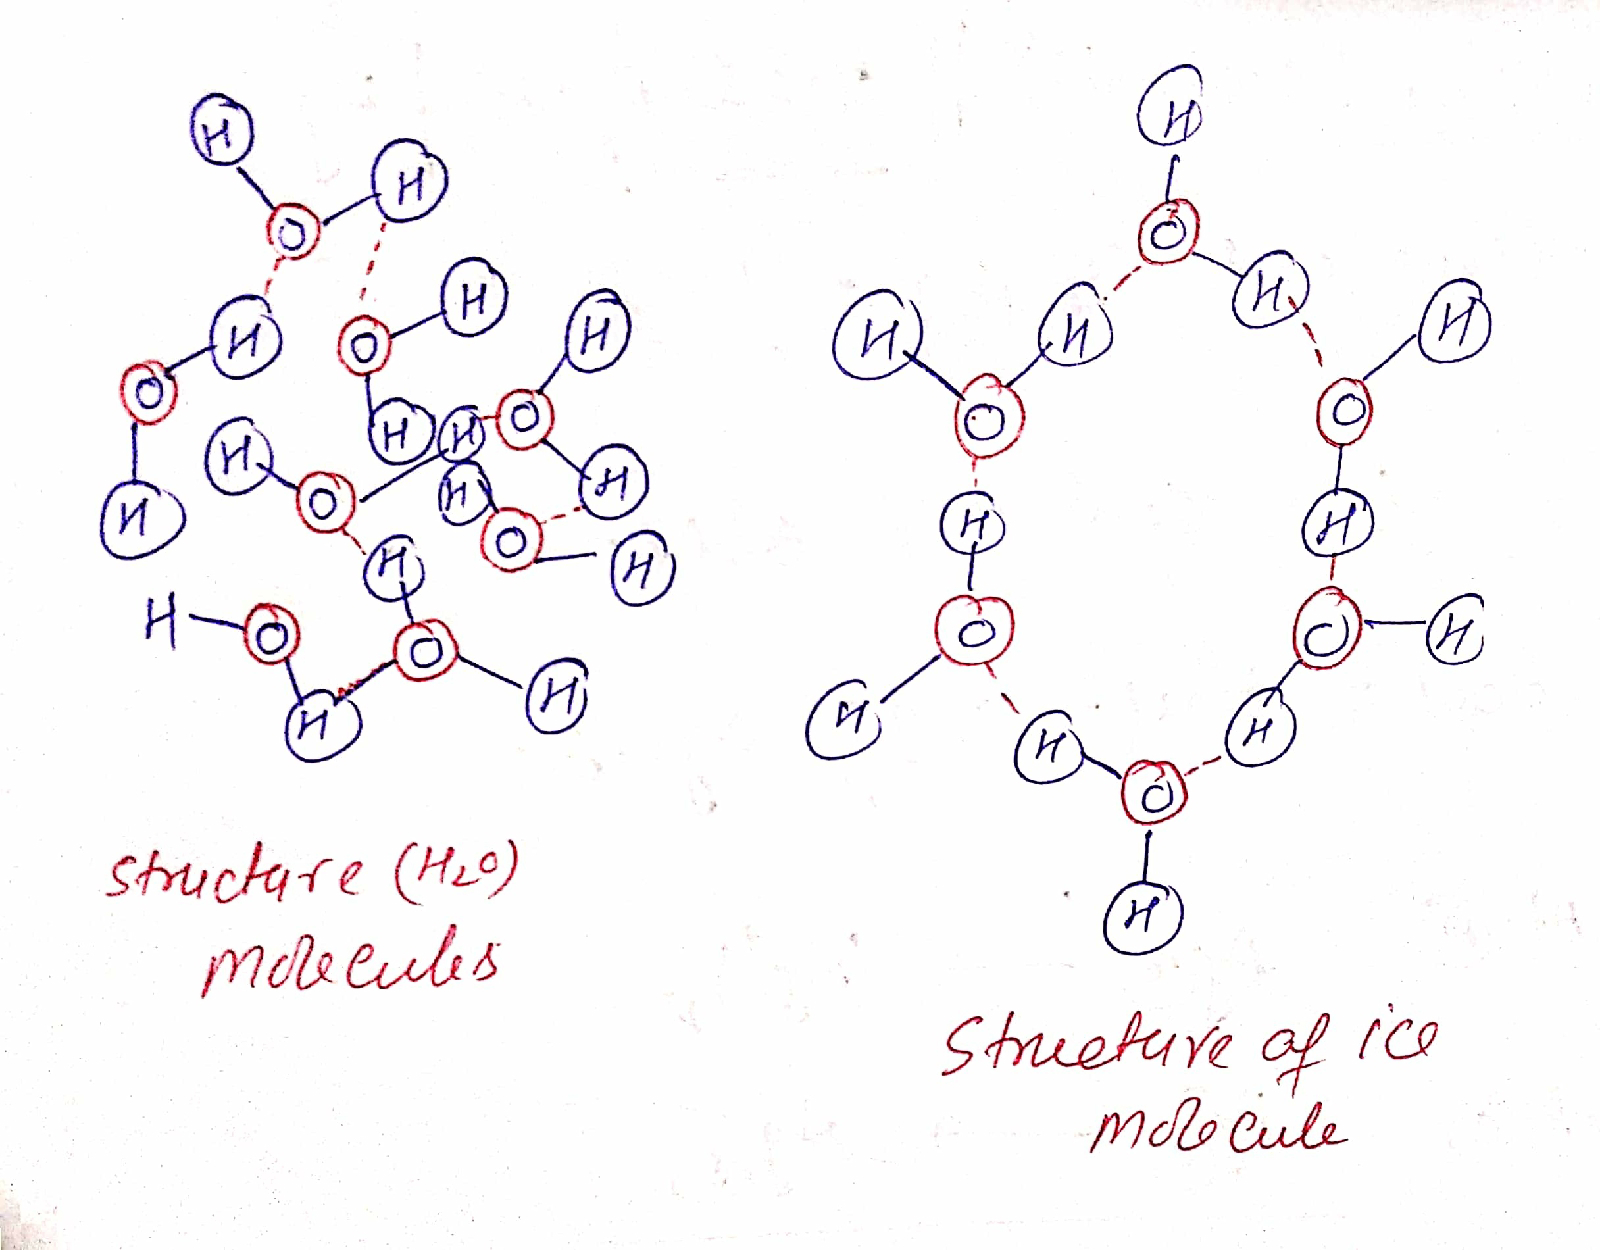 H
H
O
H
H
O
O
H
H
H
H
O
H
O
H
H
O
H
H
H
O
O
H
H
H
O
H
H
H
H
H
O
O
H
H
O
O
H
H
H
H
O
H
structure (H₂O)
molecules
Structure of ice
molecule